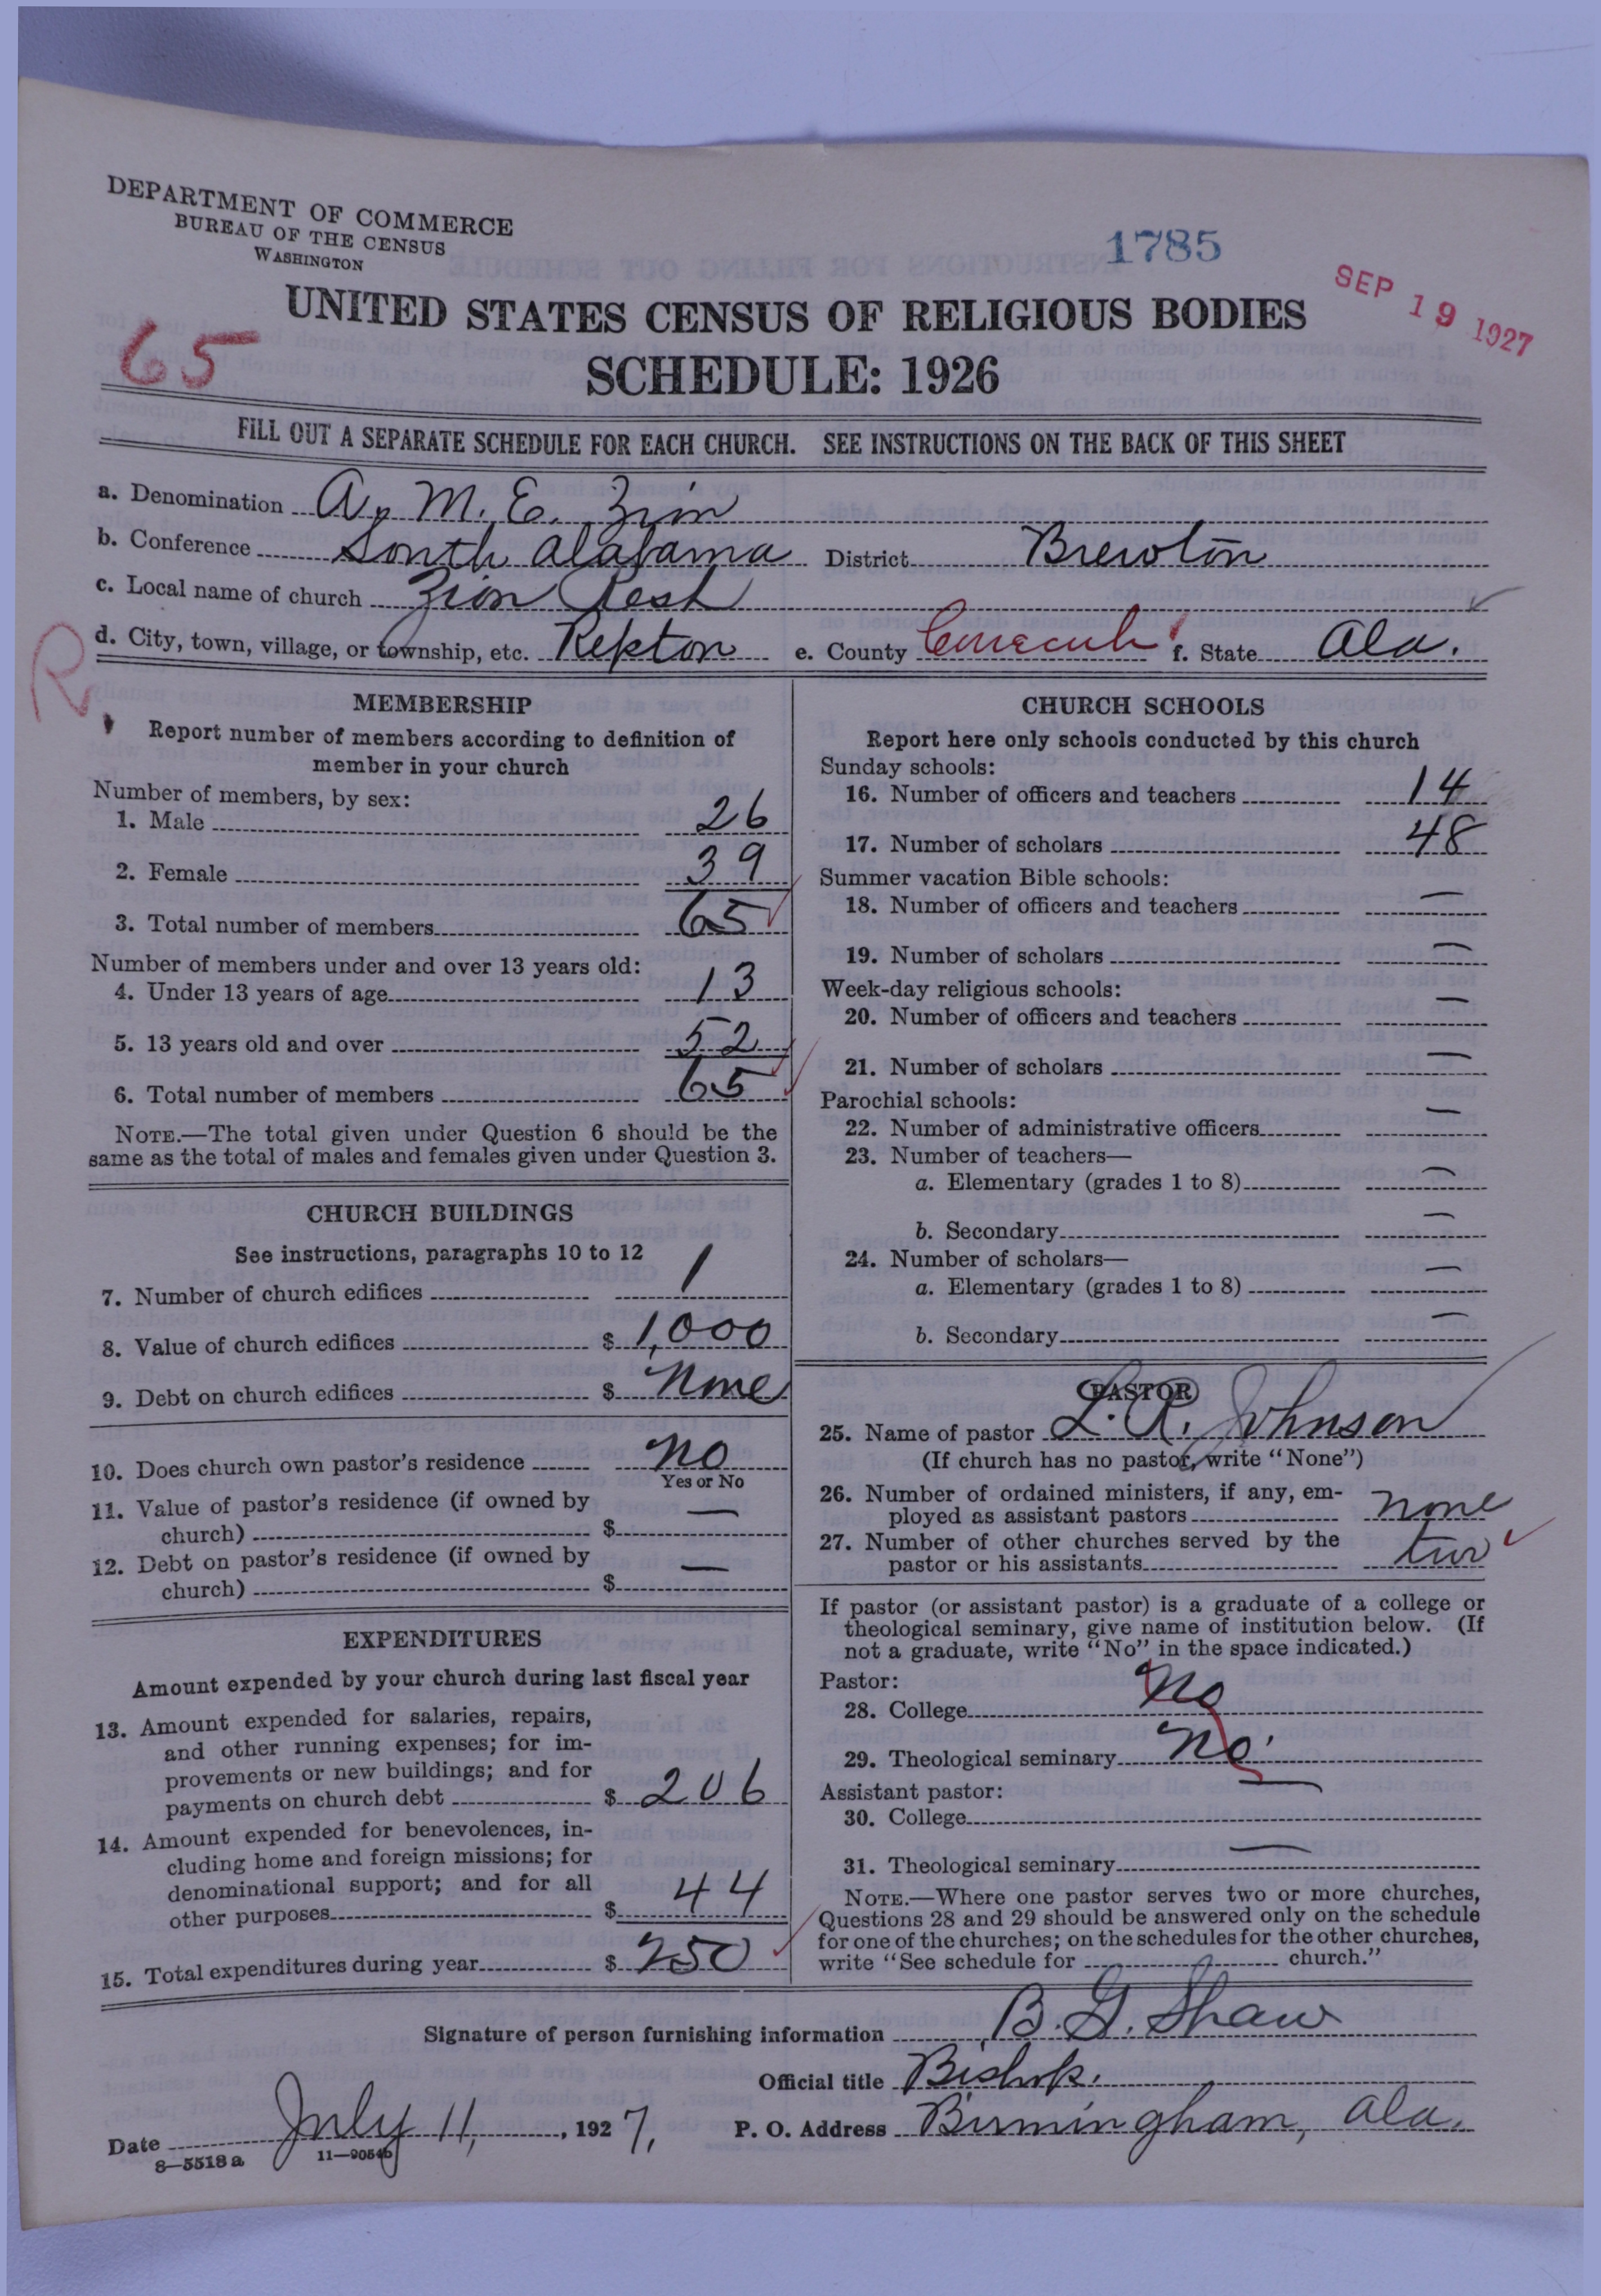 DEPARTMENT OF COMMERCE
BUREAU OF THE CENSUS
WASHINGTON
1785
SEP 19 1927
UNITED STATES CENSUS OF RELIGIOUS BODIES
65
SCHEDULE: 1926
FILL OUT A SEPARATE SCHEDULE FOR EACH CHURCH. SEE INSTRUCTIONS ON THE BACK OF THIS SHEET
a. Denomination A. M. E. Zion
b. Conference South Alabama District Brewton
c. Local name of church Zion Rest
d. City, town, village, or township, etc. Repton e. County Conecuh f. State Ala.
R
MEMBERSHIP
Report number of members according to definition of
member in your church
Number of members, by sex:
1. Male 26
2. Female 39
3. Total number of members 65
Number of members under and over 13 years old:
4. Under 13 years of age 13
5. 13 years old and over 52
6. Total number of members 65
NOTE.—The total given under Question 6 should be the
same as the total of males and females given under Question 3.
CHURCH BUILDINGS
See instructions, paragraphs 10 to 12
7. Number of church edifices 1
8. Value of church edifices $ 1,000
9. Debt on church edifices $ None
10. Does church own pastor's residence No
Yes or No
11. Value of pastor's residence (if owned by
church) $ —
12. Debt on pastor's residence (if owned by
church) $ —
EXPENDITURES
Amount expended by your church during last fiscal year
13. Amount expended for salaries, repairs,
and other running expenses; for im-
provements or new buildings; and for
payments on church debt $ 206
14. Amount expended for benevolences, in-
cluding home and foreign missions; for
denominational support; and for all
other purposes $ 44
15. Total expenditures during year $ 250
CHURCH SCHOOLS
Report here only schools conducted by this church
Sunday schools:
16. Number of officers and teachers 14
17. Number of scholars 48
Summer vacation Bible schools:
18. Number of officers and teachers —
19. Number of scholars —
Week-day religious schools:
20. Number of officers and teachers —
21. Number of scholars —
Parochial schools:
22. Number of administrative officers —
23. Number of teachers—
a. Elementary (grades 1 to 8) —
b. Secondary —
24. Number of scholars—
a. Elementary (grades 1 to 8) —
b. Secondary —
PASTOR
25. Name of pastor L. R. Johnson
(If church has no pastor, write "None")
26. Number of ordained ministers, if any, em-
ployed as assistant pastors none
27. Number of other churches served by the
pastor or his assistants two
If pastor (or assistant pastor) is a graduate of a college or
theological seminary, give name of institution below. (If
not a graduate, write "No" in the space indicated.)
Pastor:
28. College No
29. Theological seminary No
Assistant pastor:
30. College —
31. Theological seminary —
NOTE.—Where one pastor serves two or more churches,
Questions 28 and 29 should be answered only on the schedule
for one of the churches; on the schedules for the other churches,
write "See schedule for church."
Signature of person furnishing information B. G. Shaw
Official title Bishop.
Date July 11, 1927, P. O. Address Birmingham, Ala.
8—5518a 11—9054b